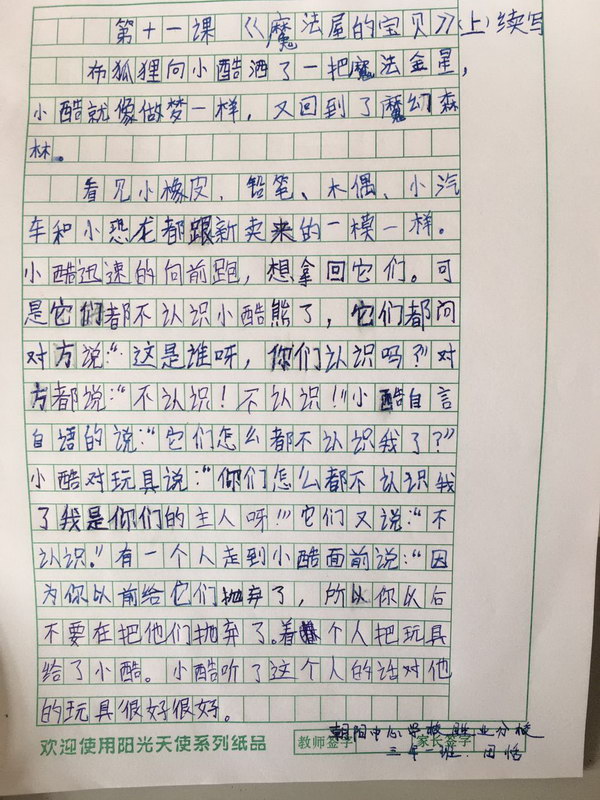 第十一课 《魔法屋的宝贝》(上)续写
布狐狸向小酷洒了一把魔法金星，
小酷就像做梦一样，又回到了魔幻森
林。
看见小橡皮、铅笔、木偶、小汽
车和小恐龙都跟新卖来的一模一样。
小酷迅速的向前跑，想拿回它们。可
是它们都不认识小酷熊了，它们都问
对方说：“这是谁呀，你们认识吗？”对
方都说：“不认识！不认识！”小酷自言
自语的说：“它们怎么都不认识我了？”
小酷对玩具说：“你们怎么都不认识我
了我是你们的主人呀！”它们又说：“不
认识。”有一个人走到小酷面前说：“因
为你以前给它们抛弃了，所以你以后
不要在把他们抛弃了。着个人把玩具
给了小酷。小酷听了这个人的话对他
的玩具很好很好。
欢迎使用阳光天使系列纸品 教师签字 家长签字
朝阳中心学校胜业分校
三年一班：田恬